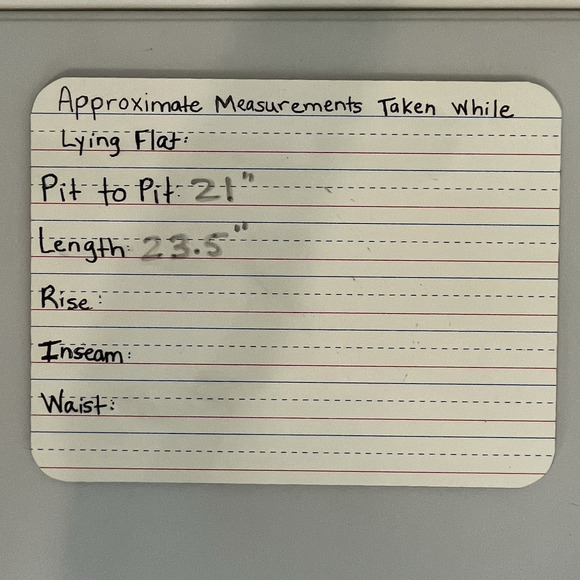 Approximate Measurements Taken While
Lying Flat:
Pit to Pit: 21"
Length: 23.5"
Rise:
Inseam:
Waist: